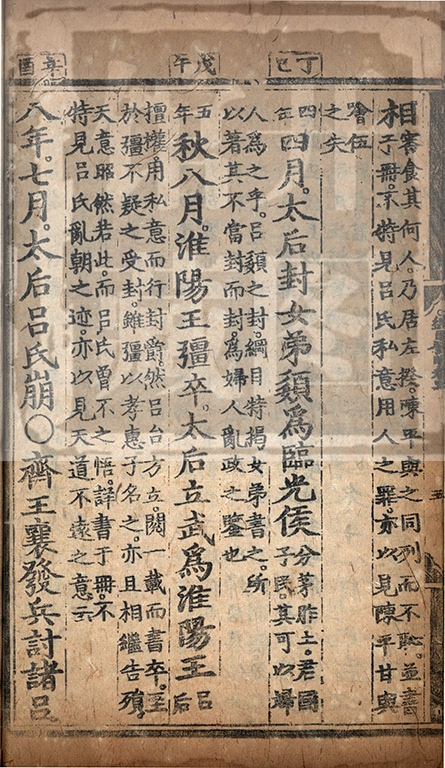 丁巳
戊午
辛酉
相審食其何人。乃居左揆。陳平與之同列而不恥。並書
于冊。不特見呂氏私意用人之罪。亦以見陳平甘與
噲伍
之失
四年四月。太后封女弟嬃爲臨光侯分茅胙土。君國
子民。其可以婦
人爲之乎。呂嬃之封。綱目特揭女弟書之。所
以著其不當封而封爲婦人亂政之鑒也
五年秋八月。淮陽王彊卒。太后立武爲淮陽王呂后
擅權。用私意而行封爵。然呂台方立。閱一載而書卒。至
於彊不疑之受封。雖彊以孝惠子名之。亦且相繼告殞。
天意昭然若此。而呂氏曾不之悟。詳書于冊。不
特見呂氏亂朝之迹。亦以見天道不遠之意云
八年。七月。太后呂氏崩○齊王襄發兵討諸呂